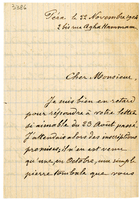 Péra, le 22 Novembre
2 bis rue Agha Hammam
Cher Monsieur,
Je suis bien en retard
pour répondre à votre lettre
si aimable du 20 Août passé.
J'attendais alors des inscriptions
promises; il n'en est venu
qu'une, en Octobre, un simple
pierre tombale que vous